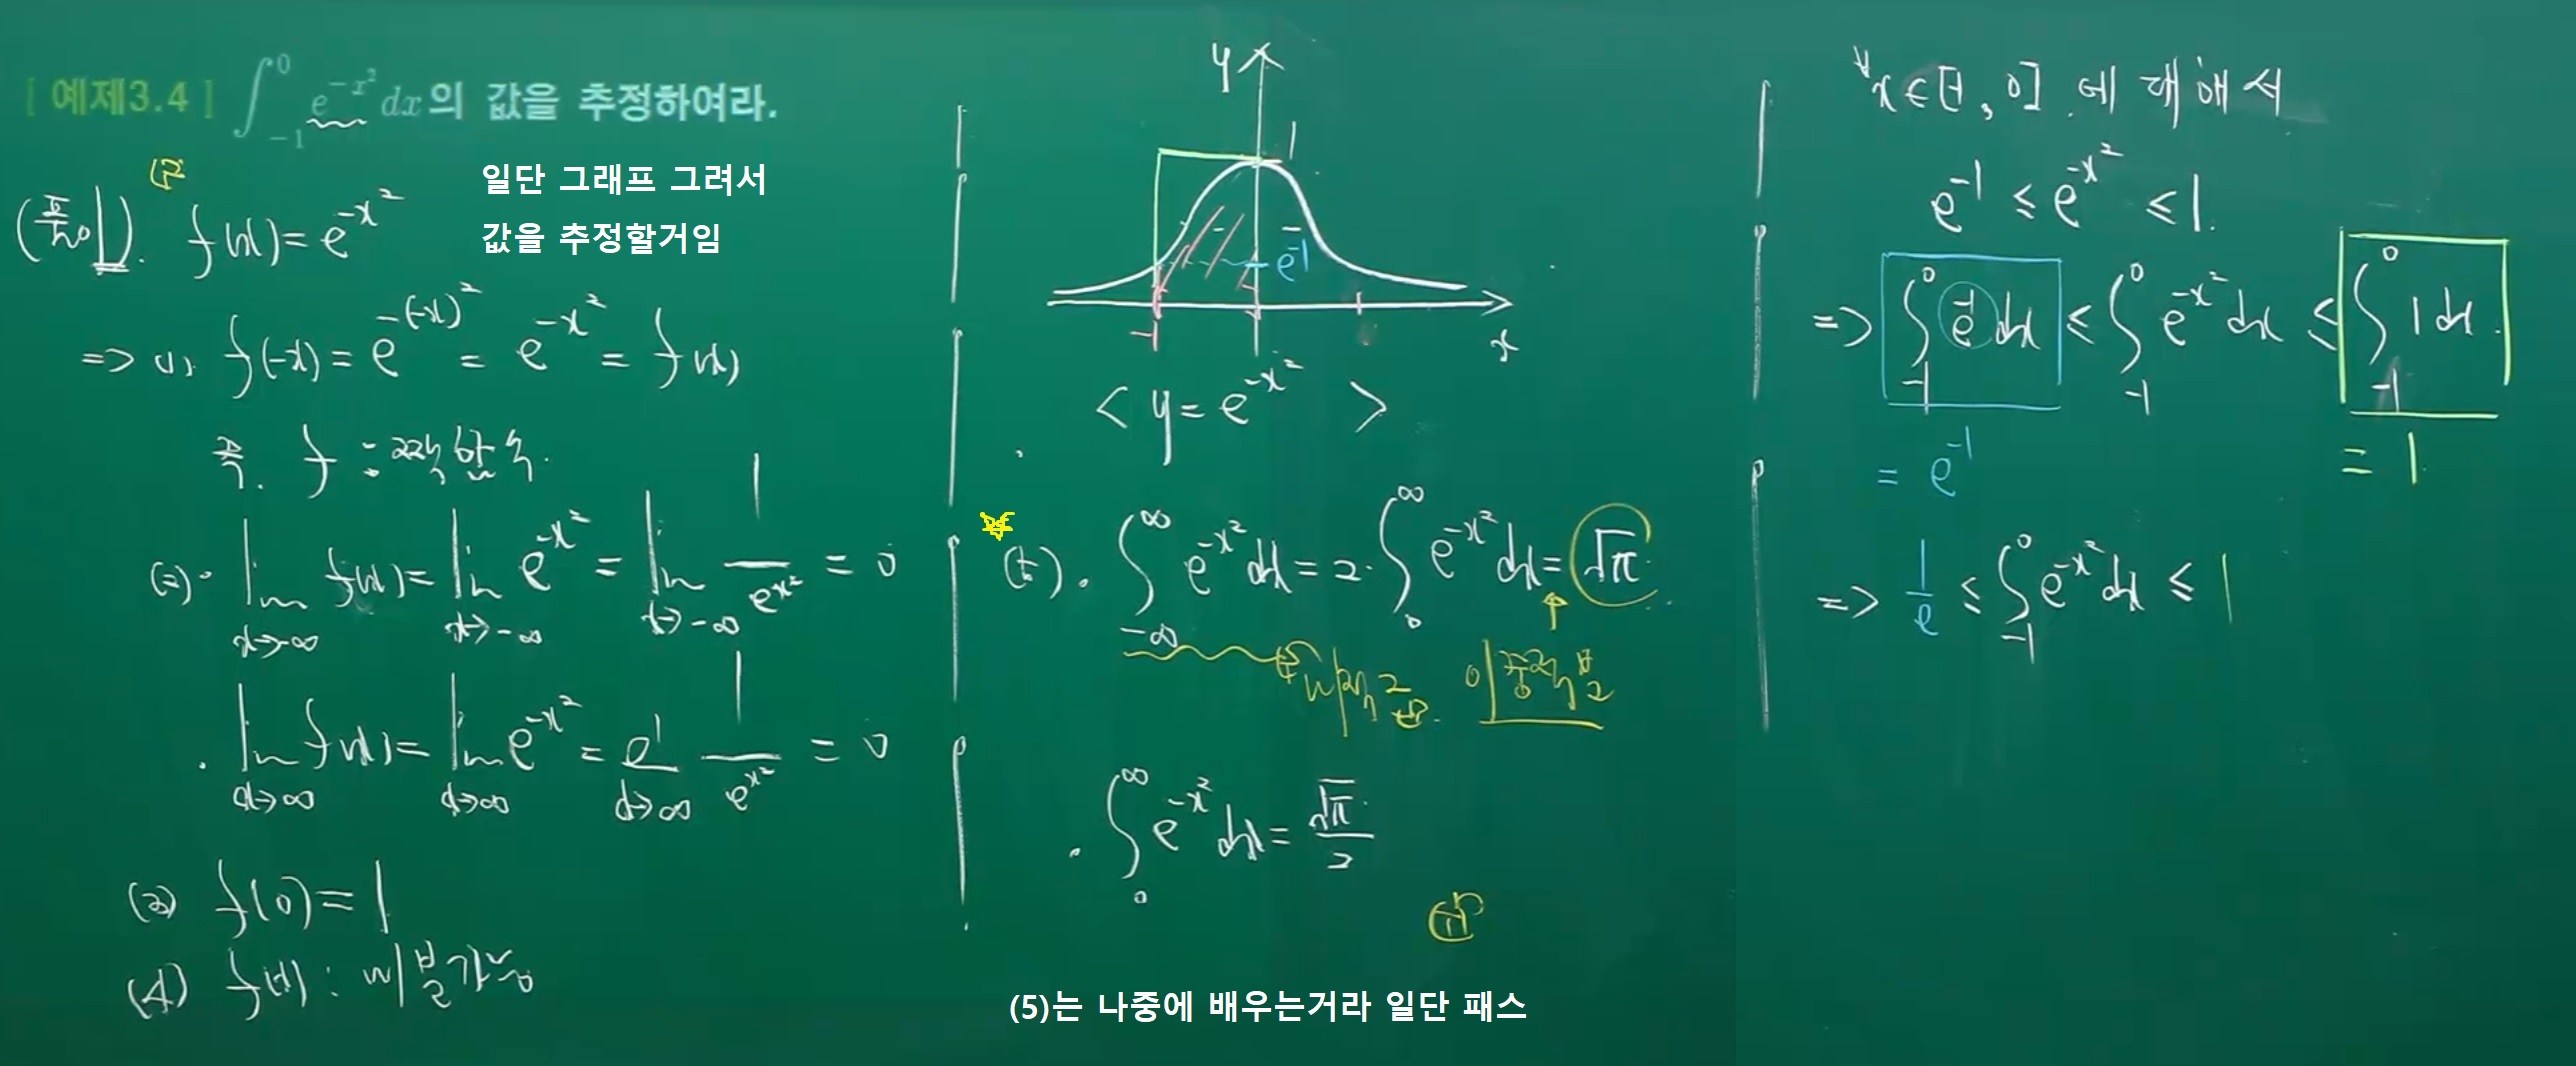 [ 예제3.4 ] ∫_{-1}^{0} e^{-x²} dx의 값을 추정하여라.
일단 그래프 그려서
값을 추정할거임
(풀이). f(x) = e^{-x²}
=> (1) f(-x) = e^{-(-x)²} = e^{-x²} = f(x)
즉. f : 우함수.
(2). lim_{x→-∞} f(x) = lim_{x→-∞} e^{-x²} = lim_{x→-∞} 1/e^{x²} = 0
. lim_{x→∞} f(x) = lim_{x→∞} e^{-x²} = lim_{x→∞} 1/e^{x²} = 0
(3) f(0) = 1
(4) f(x) : 미분가능
y
1
e^{-1}
-1
x
< y = e^{-x²} >
(5). ∫_{-∞}^{∞} e^{-x²} dx = 2·∫_{0}^{∞} e^{-x²} dx = √π
이중적분
. ∫_{0}^{∞} e^{-x²} dx = √π/2
(5)는 나중에 배우는거라 일단 패스
∀x ∈ [-1, 0] 에 대해서
e^{-1} ≤ e^{-x²} ≤ 1.
=> ∫_{-1}^{0} e^{-1} dx ≤ ∫_{-1}^{0} e^{-x²} dx ≤ ∫_{-1}^{0} 1 dx.
= e^{-1} = 1.
=> 1/e ≤ ∫_{-1}^{0} e^{-x²} dx ≤ 1